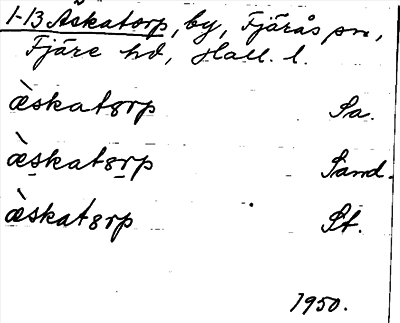 1-13 Åskatorp, by, Fjärås sn,
Fjäre hd, Hall. l.
æ̀skatȣrp Sa.
æ̀s̠katȣr̠p Sand.
æ̀skatȣrp St.
1950.